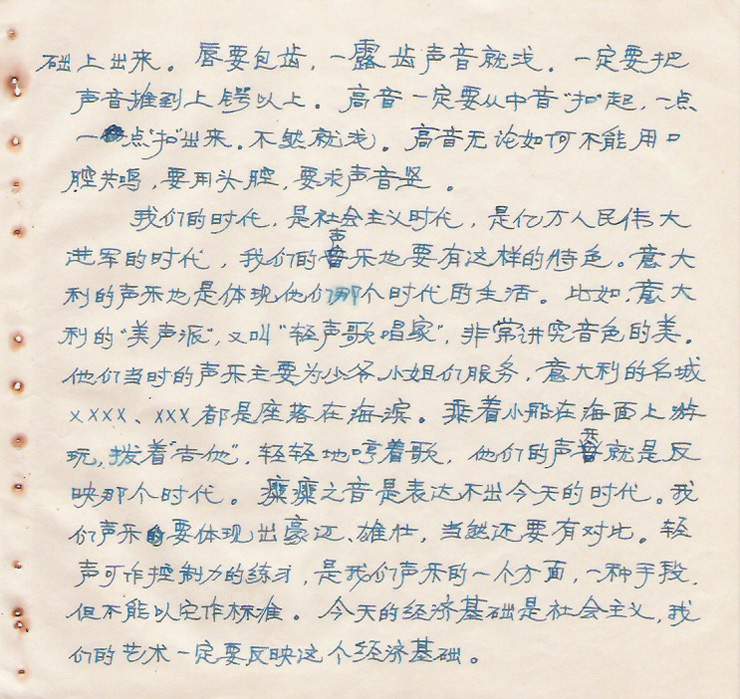 础上出来。唇要包齿，一露齿声音就浅。一定要把
声音推到上腭以上。高音一定要从中音“扣”起，一点
一点“扣”出来。不然就浅。高音无论如何不能用口
腔共鸣，要用头腔，要求声音竖。
我们的时代，是社会主义时代，是亿万人民伟大
进军的时代，我们的声乐也要有这样的特色。意大
利的声乐也是体现他们那个时代的生活。比如，意大
利的“美声派”，又叫“轻声歌唱家”，非常讲究音色的美。
他们当时的声乐主要为少爷、小姐们服务，意大利的名城
××××、×××都是座落在海滨。乘着小船在海面上游
玩，拨着“吉他”，轻轻地哼着歌，他们的声乐就是反
映那个时代。靡靡之音是表达不出今天的时代。我
们声乐的要体现出豪迈、雄壮，当然还要有对比。轻
声可作控制力的练习，是我们声乐的一个方面，一种手段，
但不能以它作标准。今天的经济基础是社会主义，我
们的艺术一定要反映这个经济基础。